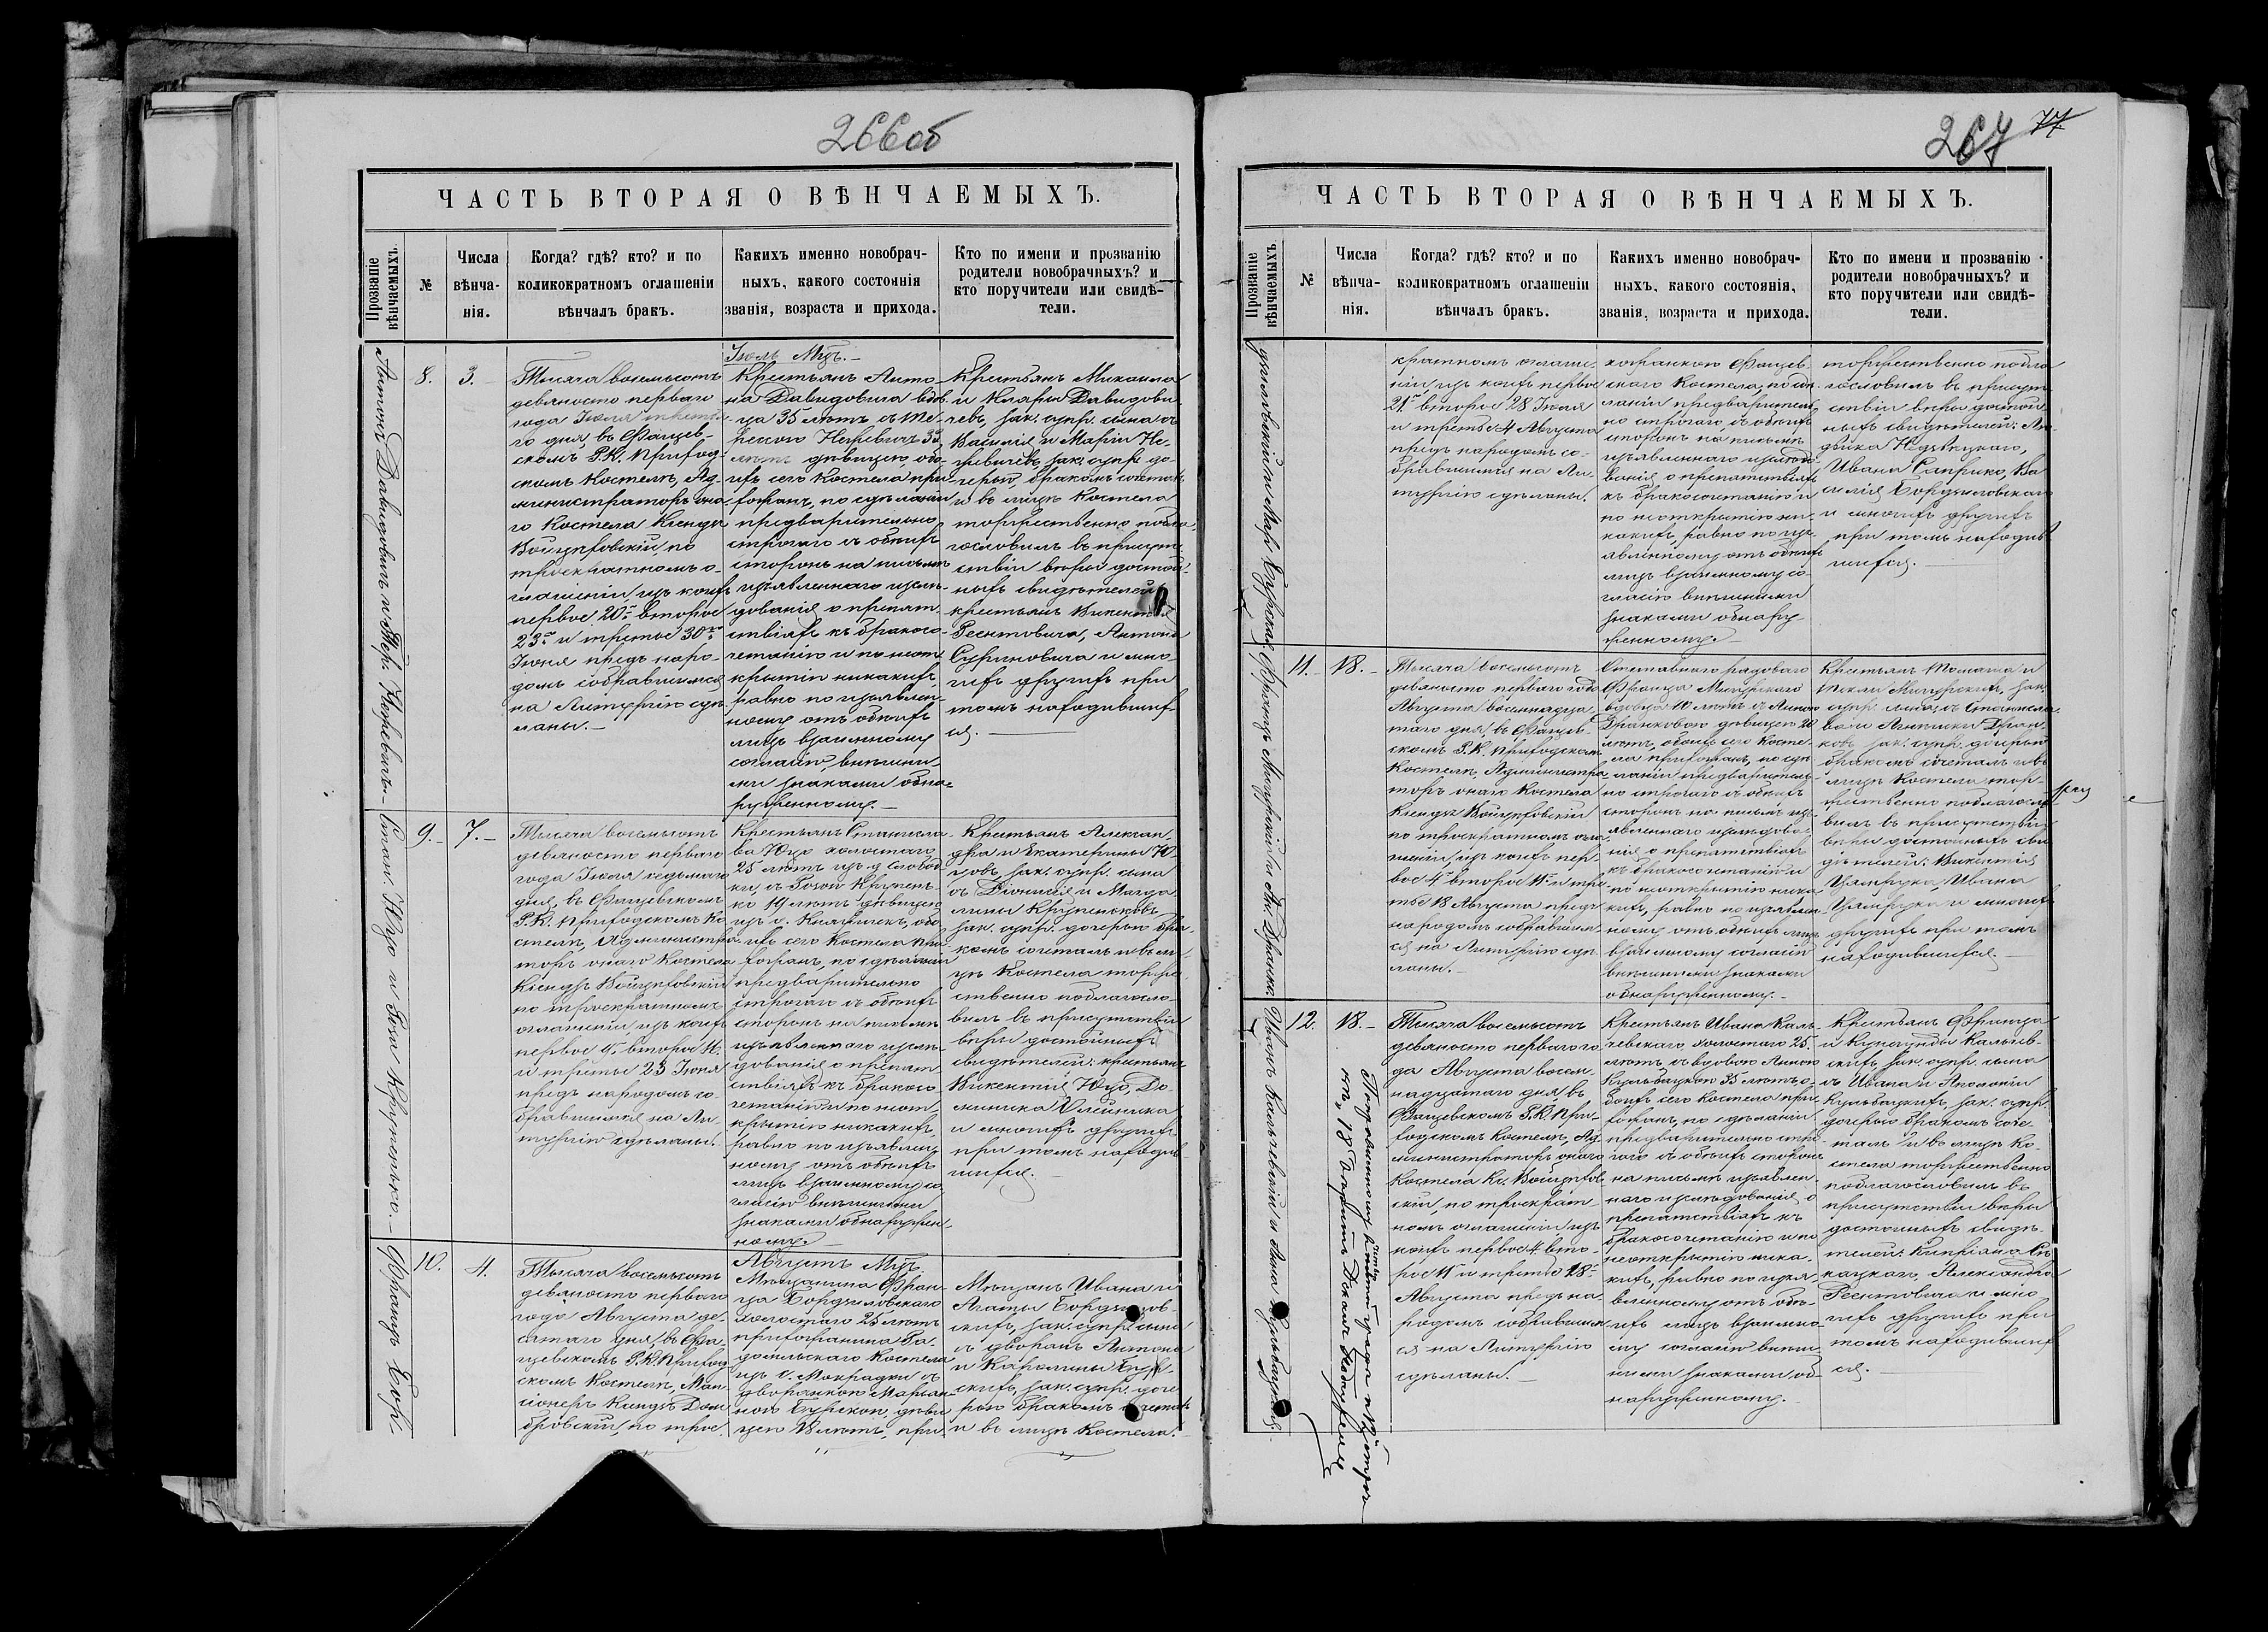 266об
ЧАСТЬ ВТОРАЯ О ВѢНЧАЕМЫХЪ.
Прозваніе вѣнчаемыхъ.
№
Числа вѣнча-
нія.
Когда? гдѣ? кто? и по
коликократномъ оглашеніи
вѣнчалъ бракъ.
Какихъ именно новобрач-
ныхъ, какого состоянія
званія, возраста и прихода.
Кто по имени и прозванію
родители новобрачныхъ? и
кто поручители или свидѣ-
тели.
Антонъ Давидовичъ и Тер.
8.
3.
Тысяча восемьсотъ
девяносто перваго
года Іюля третья-
го дня, въ Фащев-
скомъ Р.К. Приход-
скомъ Костелѣ, Ад-
министраторъ она-
го Костела Ксендзъ
Войцѣховскій по
троекратномъ о-
глашеніи, изъ коихъ
первое 20го второе
23го и третье 30го
Іюня предъ наро-
домъ собравшимся
на Литургію сдѣ-
ланы.
Іюль Мцъ.
Крестьянъ Анто-
на Давидовича вдов-
ца 35 лѣтъ съ Те-
лѣтъ дѣвицею, обо-
ихъ сего Костела при-
хожанъ, по сдѣланіи
предварительно
строгаго съ обѣихъ
сторонъ на письмѣ
изъявленнаго изслѣ-
дованія о препят-
ствіяхъ къ бракосо-
четанію и по неот-
крытіи никакихъ,
равно по изъявлен-
ному отъ обѣихъ
лицъ взаимному
согласію, внѣшни-
ми знаками обна-
руженному.
Крестьянъ Михаила
и Клары Давидови-
чевъ, зак. супр. сына съ
Василія и Маріи Не-
зак. супр. до-
черью, бракомъ сочеталъ
и въ лицѣ Костела
торжественно побла-
гословилъ въ присут-
ствіи вѣры достой-
ныхъ свидѣтелей
крестьянъ Викентія
Антона
Суриновича и мно-
гихъ другихъ при
томъ находивших-
ся.
Стан. Юцо и Роза Крупенько.
9.
7.
Тысяча восемьсотъ
девяносто перваго
года Іюля седьмаго
дня, въ Фащевскомъ
Р.К. Приходскомъ Ко-
стелѣ, Администра-
торъ онаго Костела
Ксендзъ Войцѣховскій
по троекратномъ
оглашеніи, изъ коихъ
первое 9. второе 16.
и третье 23 Іюня
предъ народомъ со-
бравшимся на Ли-
тургію сдѣланы.
Крестьянъ Станисла-
ва Юцо холостаго
25 лѣтъ изъ д. Слобод-
ки, съ Розою Крупень-
ко 19 лѣтъ дѣвицею
обо-
ихъ сего Костела при-
хожанъ, по сдѣланіи
предварительно
строгаго съ обѣихъ
сторонъ на письмѣ
изъявленнаго изслѣ-
дованія о препят-
ствіяхъ къ бракосо-
четанію и по неот-
крытію никакихъ,
равно по изъявлен-
ному отъ обѣихъ
лицъ взаимному со-
гласію внѣшними
знаками обнаружен-
ному.
Крестьянъ Алексан-
дра и Екатерины Ю-
цовъ, зак. супр. сына
съ Діонисія и Магда-
лины Крупеньковъ,
зак. супр. дочерью бра-
комъ сочеталъ и въ ли-
цѣ Костела торже-
ственно поблагосло-
вилъ въ присутствіи
вѣры достойныхъ
свидѣтелей: крестьянъ
Викентія Юцо, До-
миника Олейника
и многихъ другихъ
при томъ находив-
шихся.
Францъ Бор-
10.
4.
Тысяча восемьсотъ
девяносто перваго
года Августа че-
твертаго дня, въ Фа-
щевскомъ Р.К. Приход-
скомъ Костелѣ, Ман-
сіонеръ Ксендзъ Дом-
бровскій, по трое-
Августъ Мцъ.
Мѣщанина Фран-
ца Бордзиловскаго
холостаго 25 лѣтъ
прихожанина Ра-
домльскаго Костела
изъ с. Мокрядки съ
дворянкою Марьян-
ною Бурскою, дѣви-
цею 18 лѣтъ, при-
Мѣщанъ Ивана и
Агаты Бордзилов-
скихъ, зак. супр. сына
съ дворянъ Антона
и Каролины Бур-
скихъ, зак. супр. доче-
рью бракомъ сочеталъ
и въ лицѣ Костела
267
77
ЧАСТЬ ВТОРАЯ О ВѢНЧАЕМЫХЪ.
Прозваніе вѣнчаемыхъ
№
Числа вѣнча-
нія.
Когда? гдѣ? кто? и по
коликократномъ оглашеніи
вѣнчалъ бракъ.
Какихъ именно новобрач-
ныхъ, какого состоянія,
званія, возраста и прихода.
Кто по имени и прозванію
родители новобрачныхъ? и
кто поручители или свидѣ-
тели.
дзиловскій и Мар. Бурская
кратномъ оглаше-
ніи изъ коихъ первое
21го второе 28 Іюля
и третье 4 Августа
предъ народомъ со-
бравшимся на Ли-
тургію сдѣланы.
хожанкою Фащев-
скаго Костела, по сдѣ-
ланіи предваритель-
но строгаго, съ обѣихъ
сторонъ на письмѣ
изъявленнаго изслѣдо-
ванія о препятствіяхъ
къ бракосочетанію и
по неоткрытію ни-
какихъ, равно по изъ-
явленному отъ обѣихъ
лицъ взаимному со-
гласію внѣшними
знаками обнару-
женному.
торжественно побла-
гословилъ въ присут-
ствіи вѣры достой-
ныхъ свидѣтелей: Лю-
двика Недзвецкаго,
Ивана Саприко, Ва-
силія Бордзиловскаго
и многихъ другихъ
при томъ находив-
шихся.
11.
18.
Тысяча восемьсотъ
девяносто перваго года
Августа восемнадца-
таго дня, въ Фащев-
скомъ Р.К. Приходскомъ
Костелѣ, Администра-
торъ онаго Костела
Ксендзъ Войцѣховскій
по троекратномъ огла-
шеніи, изъ коихъ пер-
вое 4го второе 11го и тре-
тье 18 Августа предъ
народомъ собравшим-
ся на Литургію сдѣ-
ланы.
Отставнаго рядоваго
вдовца 40 лѣтъ съ Анною
Дранковою дѣвицею 20
лѣтъ, обоихъ сего Косте-
ла прихожанъ, по сдѣ-
ланіи предваритель-
но строгаго съ обѣихъ
сторонъ на письмѣ изъ-
явленнаго изслѣдова-
нія о препятствіяхъ
къ бракосочетанію и
по неоткрытію ника-
кихъ, равно по изъявлен-
ному отъ обѣихъ лицъ
взаимному согласію
внѣшними знаками
обнаруженному.
Крестьянъ Томаша и
зак.
супр. сына, съ Станисла-
ва и Анельки Дран-
ковъ зак. супр. дочерью
бракомъ сочеталъ и въ
лицѣ Костела тор-
жественно поблагосло-
вилъ въ присутствіи
вѣры достойныхъ сви-
дѣтелей: Викентія
Ивана
и многихъ
другихъ при томъ
находившихся.
12.
18.
Тысяча восемьсотъ
девяносто перваго го-
да Августа восем-
надцатаго дня въ
Фащевскомъ Р.К. При-
ходскомъ Костелѣ, Ад-
министраторъ онаго
Костела Кс. Войцѣхов-
скій, по троекрат-
номъ оглашеніи изъ
коихъ первое 4. вто-
рое 11 и третье 18го
Августа предъ на-
родомъ собравшим-
ся на Литургію
сдѣланы.
Крестьянъ Ивана Каль-
чевскаго холостаго 25
лѣтъ, съ вдовою Анною
Кульбацкою 35 лѣтъ о-
боихъ сего Костела при-
хожанъ, по сдѣланіи
предварительно стро-
гаго съ обѣихъ сторонъ
на письмѣ изъявлен-
наго изслѣдованія о
препятствіяхъ къ
бракосочетанію и по
неоткрытію ника-
кихъ, равно по изъя-
вленному отъ обѣ-
ихъ лицъ взаимно-
му согласію внѣш-
ними знаками об-
наруженному.
Крестьянъ Франца
и Кунегунды Кальчев-
скихъ зак. супр. сына
съ Ивана и Аполоніи
Кульбацкихъ, зак. супр.
дочерью бракомъ соче-
талъ и въ лицѣ Ко-
стела торжественно
поблагословилъ въ
присутствіи вѣры
достойныхъ свидѣ-
телей: Кипріана
Александра
и мно-
гихъ другихъ при
томъ находивших-
ся.
Иванъ Кальчевскій и Анна Кульбацкая.